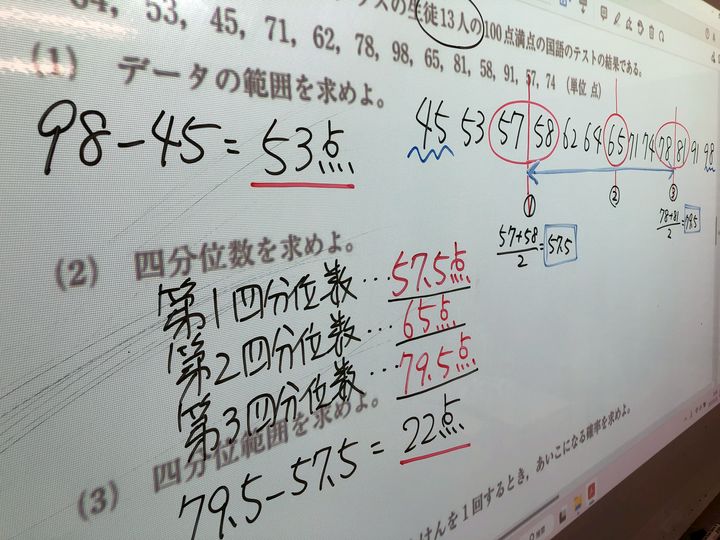 の生徒13人の100点満点の国語のテストの結果である。
64, 53, 45, 71, 62, 78, 98, 65, 81, 58, 91, 57, 74 (単位 点)
(1) データの範囲を求めよ。
98-45=53点
45 53 57 58 62 64 65 71 74 78 81 91 98
① ② ③
57+58/2=57.5
78+81/2=79.5
(2) 四分位数を求めよ。
第1四分位数…57.5点
第2四分位数…65点
第3四分位数…79.5点
(3) 四分位範囲を求めよ。
79.5-57.5=22点
けんを1回するとき,あいこになる確率を求めよ。